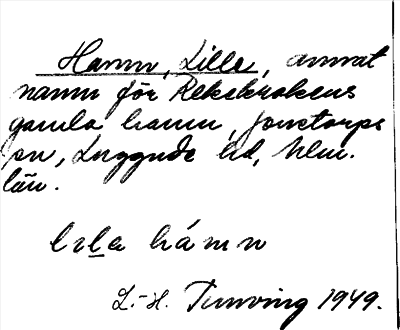 Hamn, Lilla, annat
namn för Rekekrokens
gamla hamn, Jonstorps
sn, Luggude hd, Mlm.
län.
lıla hámn
L.-H. Tunving 1949.